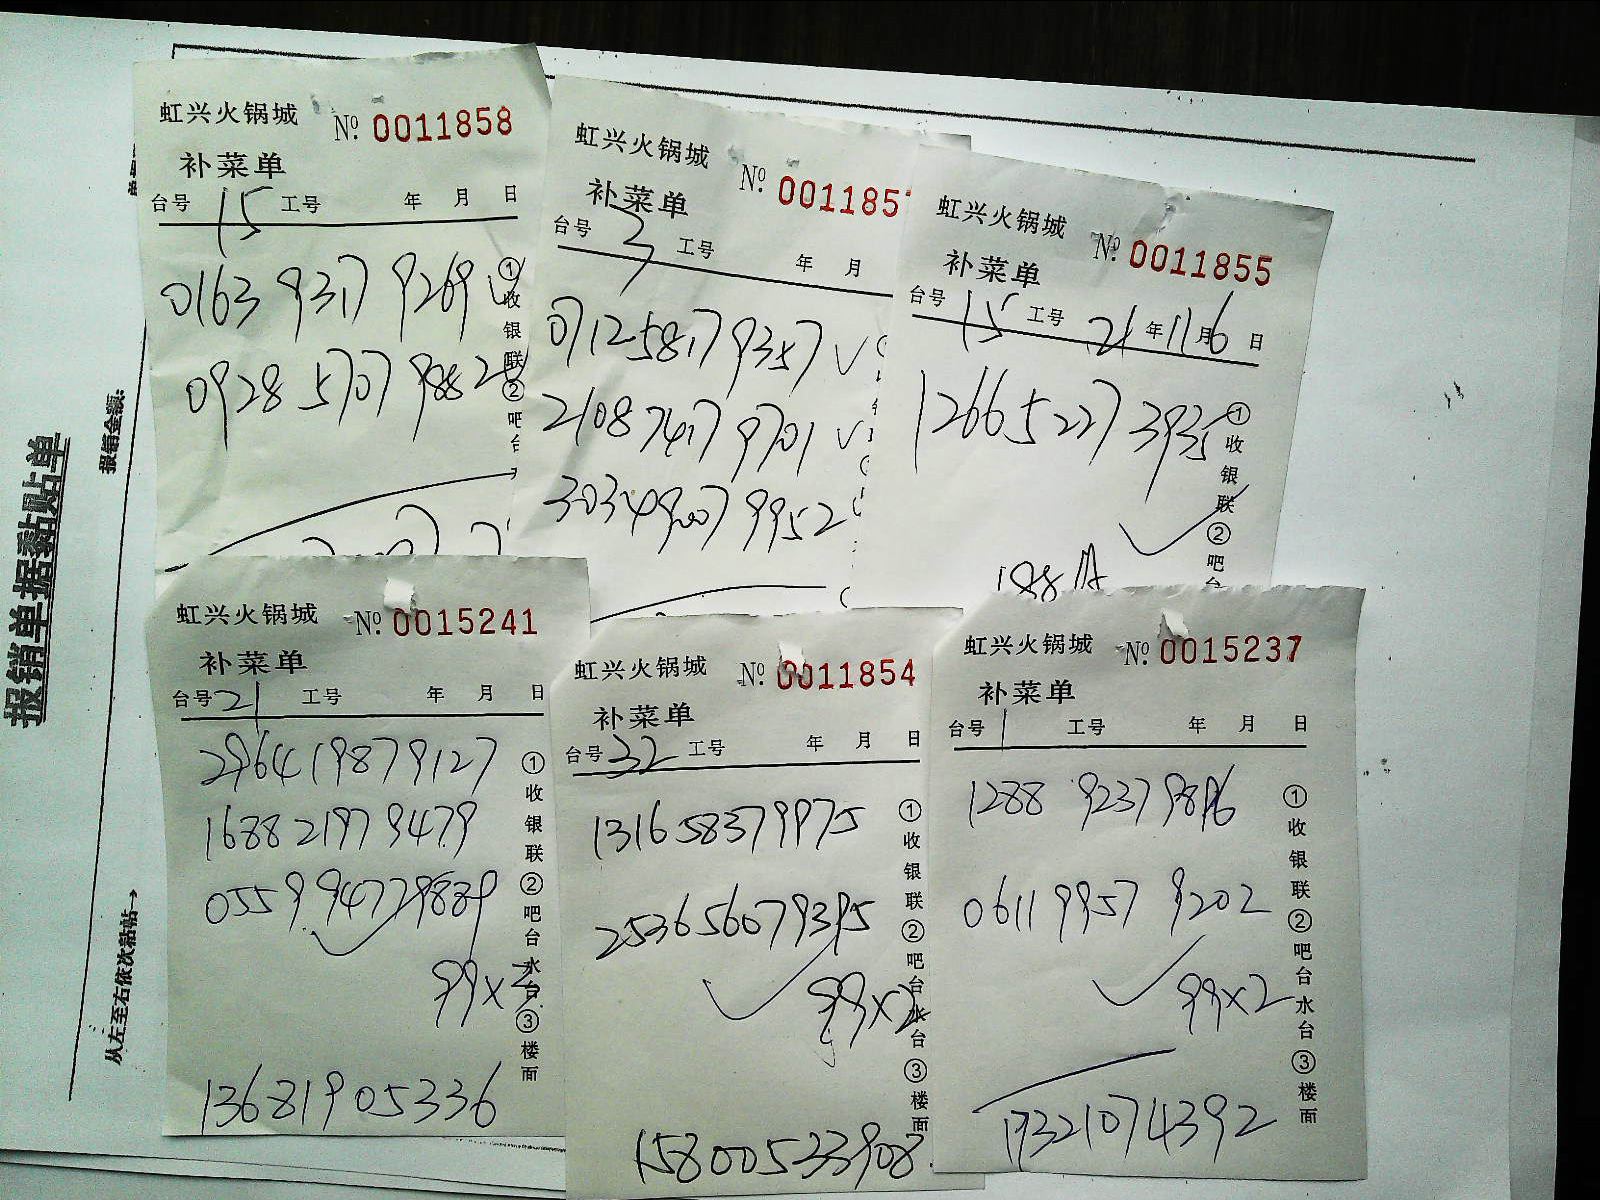 报销单据黏贴单
报销金额:
从左至右依次粘帖→
虹兴火锅城
Nº 0011858
补菜单
台号 15 工号 年 月 日
0163 9317 9269
0928 5707 9882
①收银联②吧台
虹兴火锅城
Nº 001185
补菜单
台号 3 工号 年 月
0712 5817 9357 ✓
2108 7417 9701 ✓
3034 9007 9952
虹兴火锅城
Nº 0011855
补菜单
台号 15 工号 21 年 11 月 6 日
1266 5227 3935
✓
188
①收银联②吧台
虹兴火锅城
Nº 0015241
补菜单
台号 21 工号 年 月 日
2964 1987 9127
1688 2197 9479
0559 9477 9889
✓
99×3
13681905336
①收银联②吧台水台③楼面
虹兴火锅城
Nº 0011854
补菜单
台号 32 工号 年 月 日
1316 5837 9975
2536 5607 9395
✓
99×2
15800533908
①收银联②吧台水台③楼面
虹兴火锅城
Nº 0015237
补菜单
台号 1 工号 年 月 日
1288 9237 9896
0611 9957 9202
✓
99×2
17321074392
①收银联②吧台水台③楼面